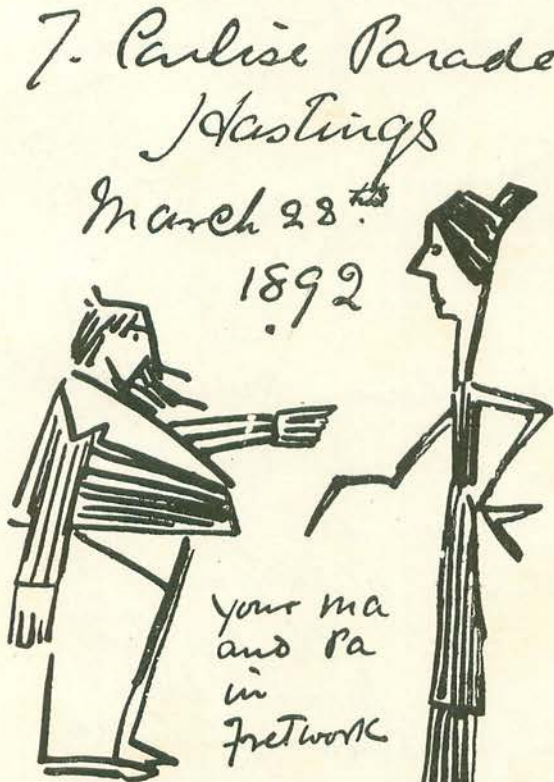 7. Carlise Parade
Hastings
March 28th
1892
your ma
and Pa
in
Fretwork